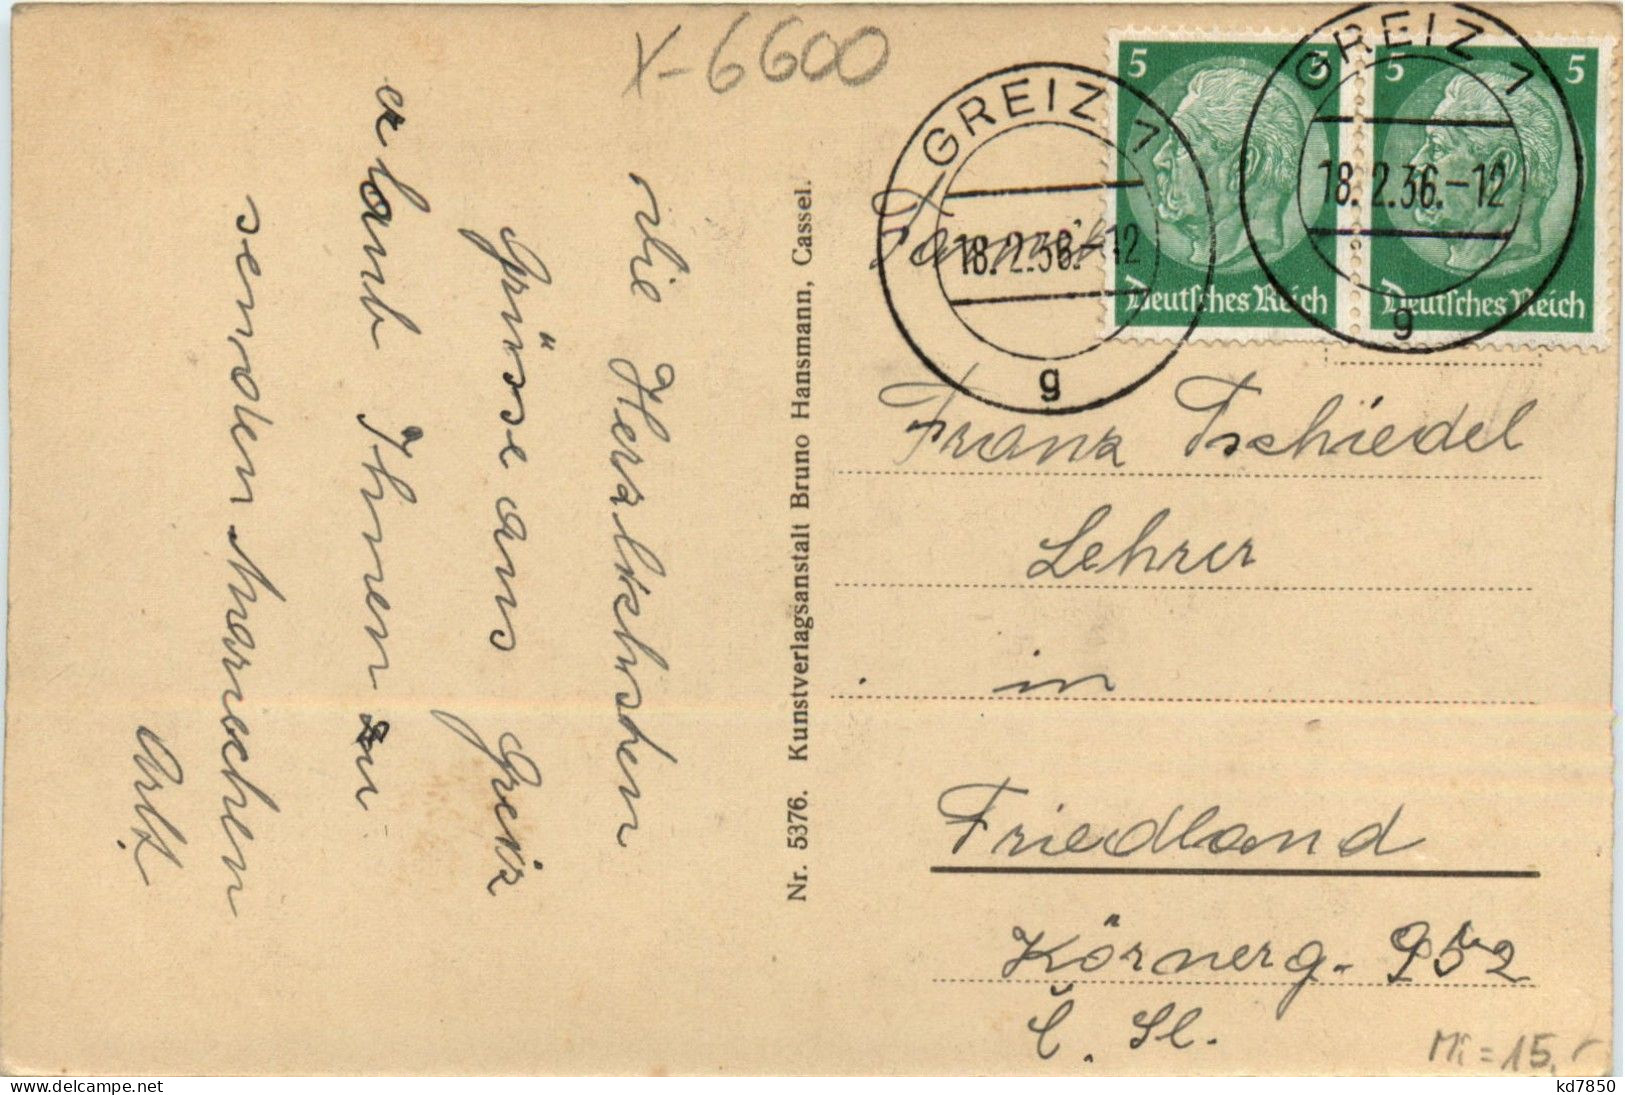 X-6600
die Herzlichsten
Grüsse aus Greiz
erlaub Ihnen zu
senden Mariechen
Nr. 5376. Kunstverlagsanstalt Bruno Hansmann, Cassel.
GREIZ 1
18.2.36.-12
g
GREIZ 1
18.2.36.-12
g
5 5
Deutsches Reich
5 5
Deutsches Reich
Franz Tschiedel
Lehrer
in
Friedland
Körnerg. 952
Č. Sl.
Mi = 15,-
kd7850